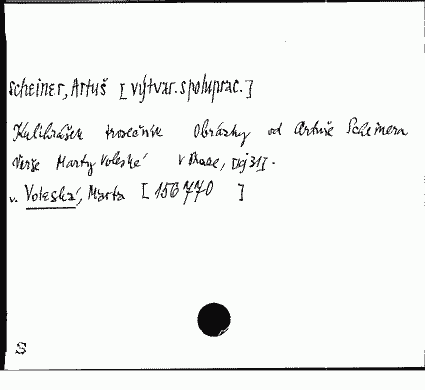 Scheiner, Artuš [výtvar. spoluprac.]
Kulihrášek trosečník Obrázky od Artuše Scheinera
Verše Marty Voleské V Praze,
v. Voleská, Marta [156770 ]
S